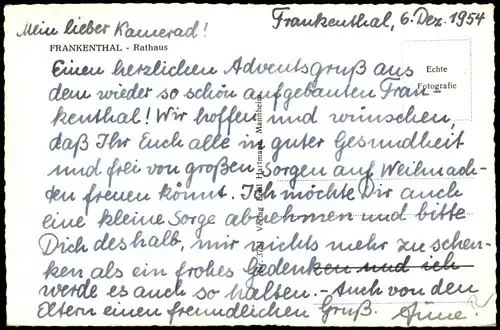 Mein lieber Kamerad!
Frankenthal, 6. Dez. 1954
FRANKENTHAL - Rathaus
Echte
Fotografie
Einen herzlichen Adventsgruß aus
dem wieder so schön aufgebauten Fran-
kenthal! Wir hoffen und wünschen,
daß Ihr Euch alle in guter Gesundheit
und frei von großen Sorgen auf Weihnach-
den freuen könnt. Ich möchte Dir auch
eine kleine Sorge abnehmen und bitte
Dich deshalb, mir nichts mehr zu schen-
ken als ein frohes Gedenken und ich
werde es auch so halten. - Auch von den
Eltern einen freundlichen Gruß.
Verlag Hartmann, Mannheim